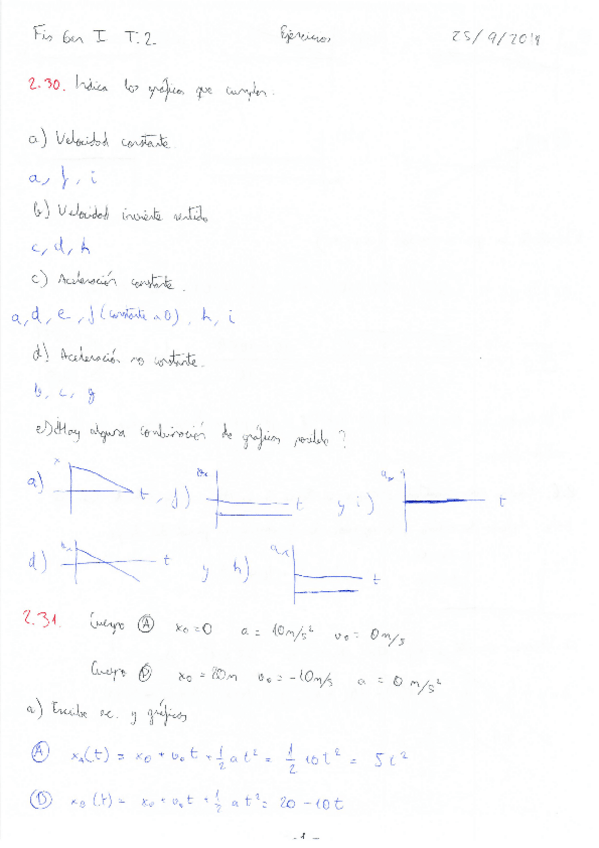 Fis Gen I T.2. Ejercicios 25/9/2018
2.30. Indica las gráficas que cumplen.
a) Velocidad constante
a, f, i
b) Velocidad invierte sentido
c, d, h
c) Aceleración constante.
a, d, e, f (constante a 0), h, i
d) Aceleración no constante.
b, c, g
e) ¿Hay alguna combinación de gráficas posible?
a) x t, f) t y i) t
d) t y h) t
2.31. Cuerpo A x₀ = 0 a = 10 m/s² v₀ = 0 m/s
Cuerpo x₀ = 20m v₀ = -10m/s a = 0 m/s²
a) Escribe ec. y gráficas
A x_A(t) = x₀ + v₀t + 1/2 at² = 1/2 10t² = 5t²
(t) = x₀ + v₀t + 1/2 at² = 20 - 10t
- 1 -